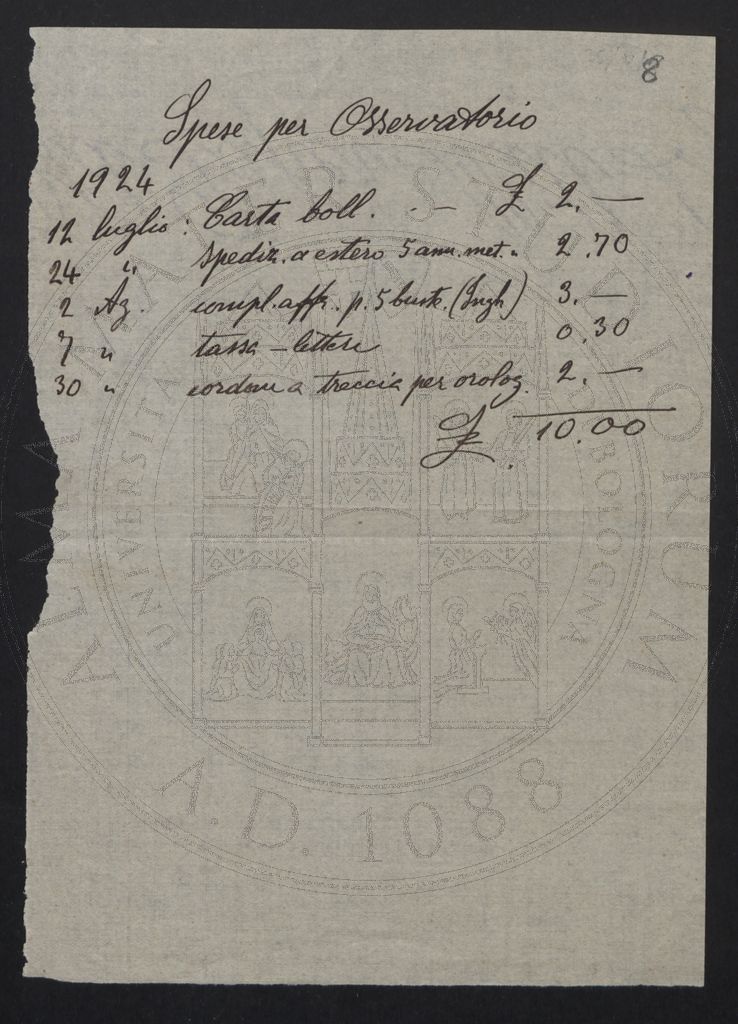 8
Spese per Osservatorio
1924
12 luglio : Carta boll. . — £ 2. —
24 " spediz. a estero 5 ann. met. " 2.70
2 Ag. compl. affr. p. 5 buste (Ingh.) 3. —
7 " tassa - lettere 0.30
30 " cordone a treccia per orolog. 2. —
£. 10.00
ALMA MATER STUDIORUM
UNIVERSITA DI BOLOGNA
A.D. 1088